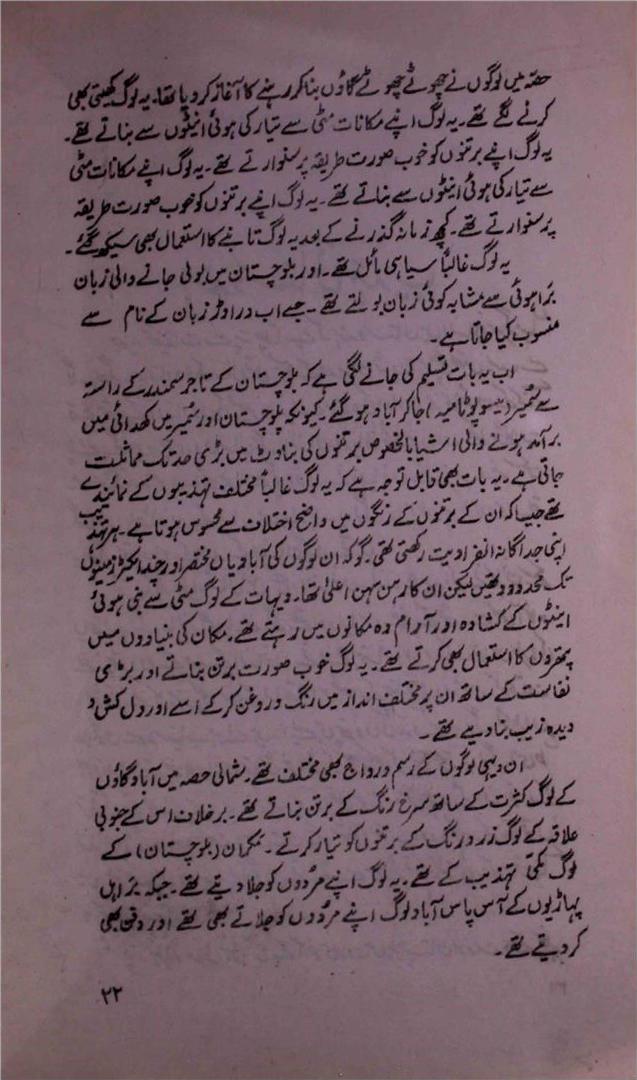 حصّہ میں لوگوں نے چھوٹے چھوٹے گاؤں بنا کر رہنے کا آغاز کر دیا تھا۔ یہ لوگ کھیتی بھی
کرنے لگے تھے۔ یہ لوگ اپنے مکانات مٹی سے تیار کی ہوئی اینٹوں سے بناتے تھے۔
یہ لوگ اپنے برتنوں کو خوب صورت طریقہ پر سنوارتے تھے۔ یہ لوگ اپنے مکانات مٹی
سے تیار کی ہوئی اینٹوں سے بناتے تھے۔ یہ لوگ اپنے برتنوں کو خوب صورت طریقہ
پر سنوارتے تھے۔ کچھ زمانہ گذرنے کے بعد یہ لوگ تانبے کا استعمال بھی سیکھ گئے۔
یہ لوگ غالباً سیاہی مائل تھے۔ اور بلوچستان میں بولی جانے والی زبان
براہوئی سے مشابہ کوئی زبان بولتے تھے۔ جسے اب دراوڑ زبان کے نام سے
منسوب کیا جاتا ہے۔
اب یہ بات تسلیم کی جانے لگی ہے کہ بلوچستان کے تاجر سمندر کے راستہ
سے سُمیر (میسوپوٹامیہ) جا کر آباد ہو گئے۔ کیونکہ بلوچستان اور سُمیر میں کھدائی میں
برآمد ہونے والی اشیا بالخصوص برتنوں کی بناوٹ میں بڑی حد تک مماثلت
جاتی ہے۔ یہ بات بھی قابل توجہ ہے کہ یہ لوگ غالباً مختلف تہذیبوں کے نمائندے
تھے جیسا کہ ان کے برتنوں کے رنگوں میں واضح اختلاف سے محسوس ہوتا ہے۔ ہر تہذیب
اپنی جداگانہ انفرادیت رکھتی تھی۔ گو کہ ان لوگوں کی آبادیاں مختصر اور چند ایکڑ زمینوں
تک محدود تھیں لیکن ان کا رہن سہن اعلیٰ تھا۔ دیہات کے لوگ مٹی سے بنی ہوئی
اینٹوں کے کشادہ اور آرام دہ مکانوں میں رہتے تھے۔ مکان کی بنیادوں میں
پتھروں کا استعمال بھی کرتے تھے۔ یہ لوگ خوب صورت برتن بناتے اور بڑی
نفاست کے ساتھ ان پر مختلف انداز میں رنگ و روغن کر کے اسے اور دل کش و
دیدہ زیب بنا دیتے تھے۔
ان دیہی لوگوں کے رسم و رواج بھی مختلف تھے۔ شمالی حصہ میں آباد گاؤں
کے لوگ کثرت کے ساتھ سرخ رنگ کے برتن بناتے تھے۔ برخلاف اس کے جنوبی
علاقہ کے لوگ زرد رنگ کے برتنوں کو تیار کرتے۔ مکران (بلوچستان) کے
لوگ تہذیب کے تھے۔ یہ لوگ اپنے مُردوں کو جلا دیتے تھے۔ جبکہ براہل
پہاڑیوں کے آس پاس آباد لوگ اپنے مُردوں کو جلاتے بھی تھے اور دفن بھی
کر دیتے تھے۔
۲۲